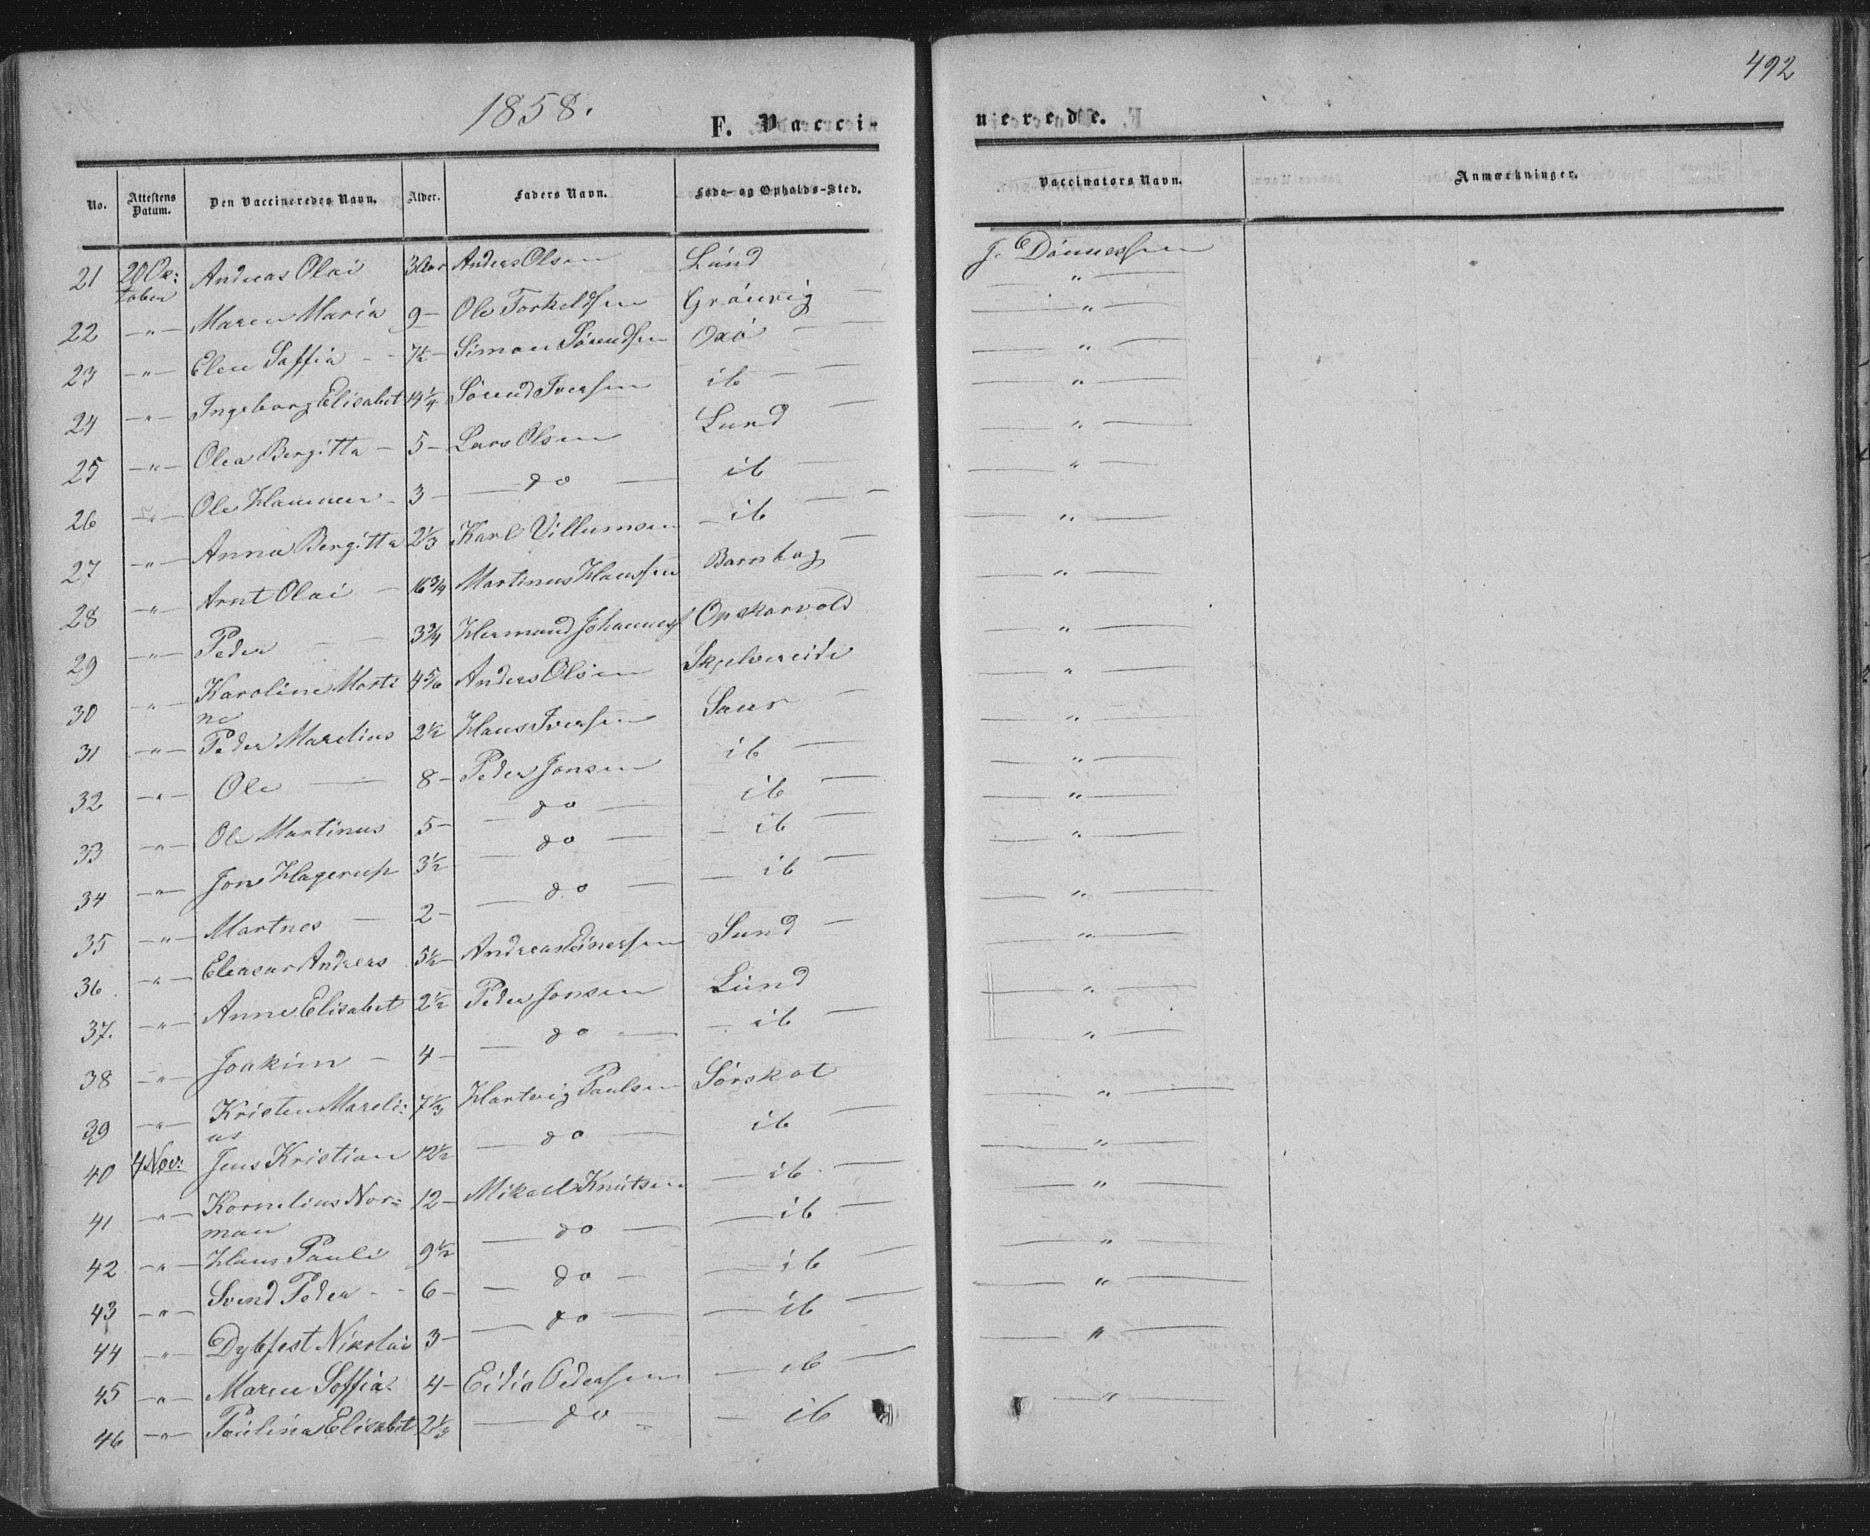 492
1858.
F. Vaccinerede.
No. Attestens Datum. Den Vaccineredes Navn. Alder. Faders Navn. Føde- og Opholds-Sted. Vaccinators Navn. Anmærkninger.
21 20 Oc:tober Andreas Olai 3 Aar Anders Olsen Lund J. Dönnessen
22 -"- Maren Maria 9- Ole Torkeldsen Grönvig — " —
23 -"- Elen Soffia - - 7½- Simon Sörendsen Oxö — " —
24 -"- Ingeborg Elisabet 14¼ Sörend Iversen ib — " —
25 -"- Olea Bergitta - 5- Lars Olsen Lund — " —
26 -"- Ole Hammer - 3- — do — ib — " —
27 -"- Anna Bergitta 2⅓ Karl Villumsen - ib — " —
28 -"- Arnt Olai - 16¾ Martinus Hanssen Barnhog — " —
29 -"- Peder 3¾ Hermand Johannes Opskarvold — " —
30 -"- Karoline Marti
ne 4⅚ Anders Olsen Skjelvereide — " —
31 -"- Peder Marelius 2½ Hans Iversen Saur — " —
32 -"- Ole — 8- Peder Jonsen ib — " —
33 -"- Ole Martinus 5- — do — ib — " —
34 -"- Jons Hagerup 3½ — do — - ib — " —
35 -"- Martnes — 2- — do — - ib — " —
36 -"- Eleasar Andreas 5½- Andreas Einersen Sund — " —
37. -"- Anne Elisabet 2½ Peder Jonsen Lund — " —
38 -"- Joakim - 4- — do — - ib — " —
39 -"- Kristen Mareli:
us 7⅓ Hartvig Paulsen Sörskot — " —
40 4 Nov: Jens Kristian 12½ — do — ib — " —
41 -"- Kornelius Nor=
man 12- Mikael Knutsen — ib — " —
42 -"- Hans Pauli 9½ — do — — ib — " —
43 -"- Svend Peder - - 6- — do — — ib — " —
44 -"- Dybfest Nikolai 3- — do — — ib — " —
45 -"- Maren Soffia. 4- Eidis Pedersen — ib — " —
46 -"- Paulina Elisabet 2⅓ — do — - ib